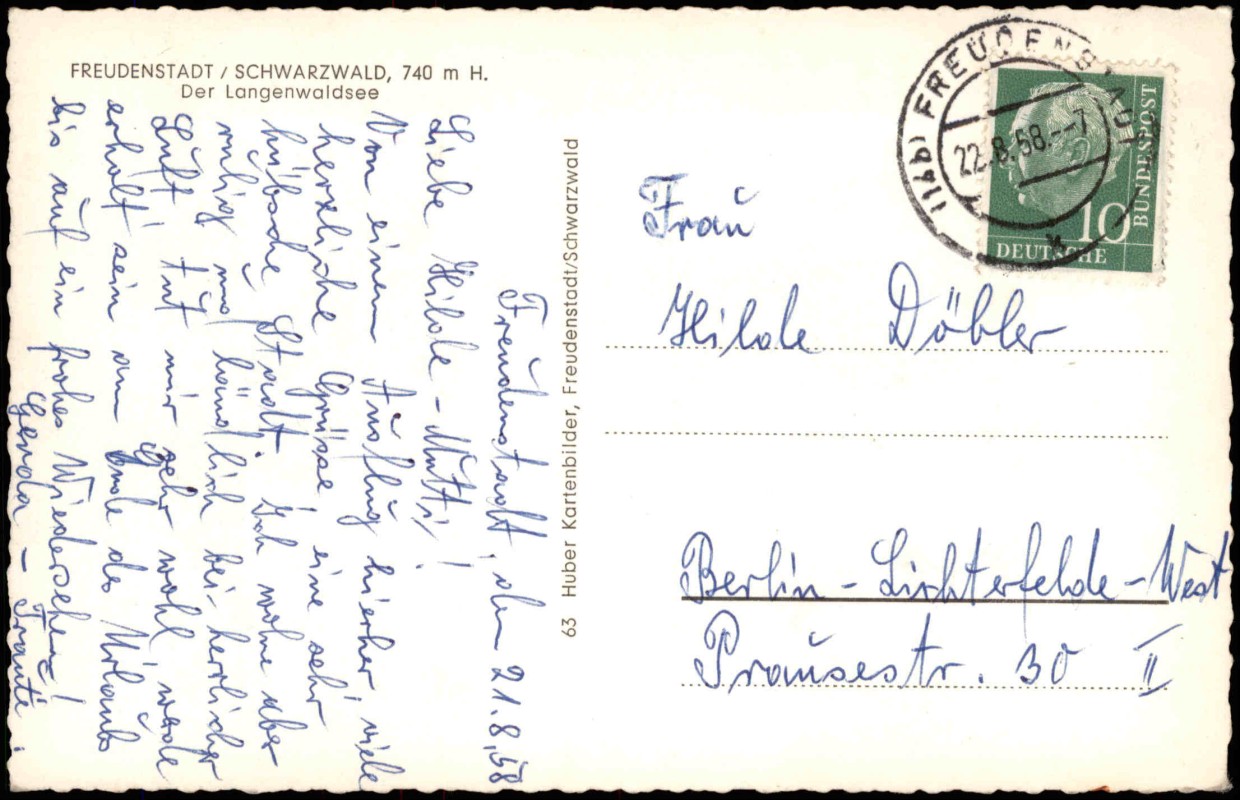 FREUDENSTADT / SCHWARZWALD, 740 m H.
Der Langenwaldsee
Freudenstadt, den 21.8.58
Liebe Hilde-Mutti!
Von einem Ausflug hierher, viele
herzliche Grüsse, eine sehr
hübsche Stadt. Ich wohne aber
ruhig und ländlich bei herrlicher
Luft, tut mir sehr wohl, werde
erholt sein am Ende des Urlaubs
bis auf ein frohes Wiedersehen!
Gerda - Traute.
63 Huber Kartenbilder, Freudenstadt/Schwarzwald
(14b) FREUDENSTADT
22.8.58.--7
10
DEUTSCHE
BUNDESPOST
Frau
Hilde Döbler
Berlin-Lichterfelde-West
Prausestr. 30 II